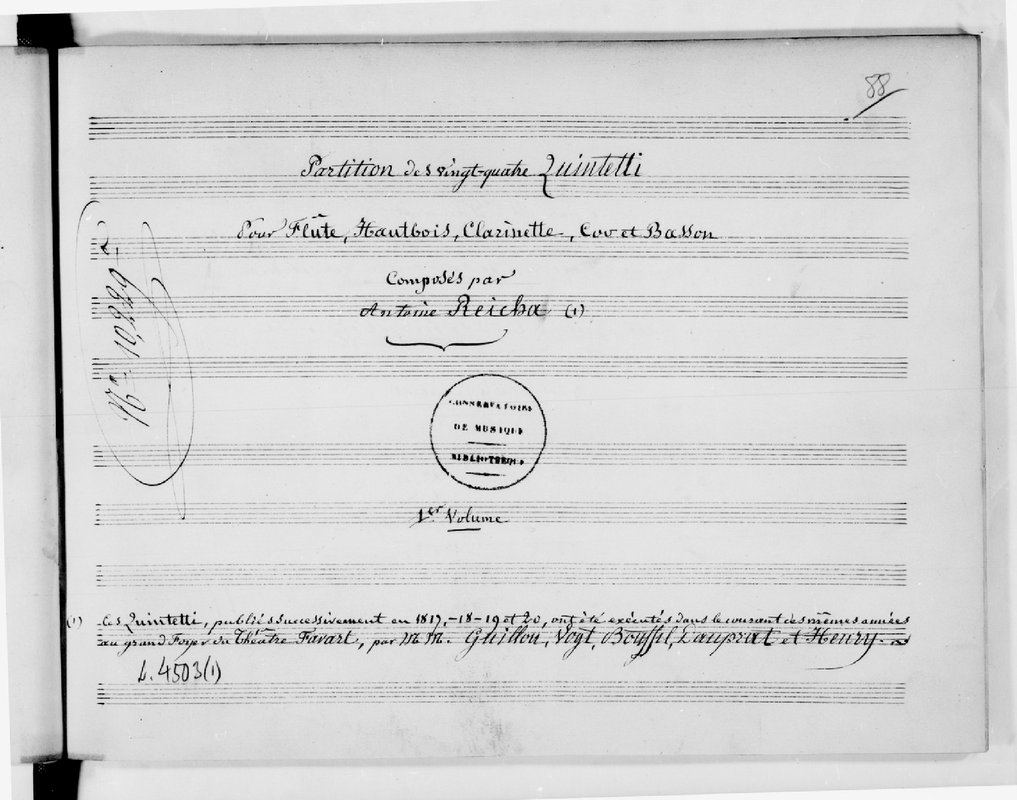 88
Partition des vingt-quatre Quintetti
Pour Flûte, Hautbois, Clarinette, Cor et Basson
Composés par
Antoine Reicha (1)
CONSERVATOIRE
DE MUSIQUE
BIBLIOTHEQUE
1er Volume
(1) Ces Quintetti, publiés successivement en 1817,-18-19 et 20, ont été exécutés dans le courant des mêmes années
au grand Foyer du Théâtre Favart, par MM. Guillou, Vogt, Bouffil, Dauprat et Henry
L. 4503(1)